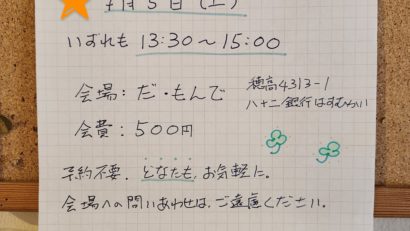 7月5日(土)
いずれも 13:30〜15:00
会場:だ・もんで
穂高4313-1
八十二銀行はすむかい
会費:500円
予約不要、どなたも、お気軽に。
会場への問いあわせは、ご遠慮ください。